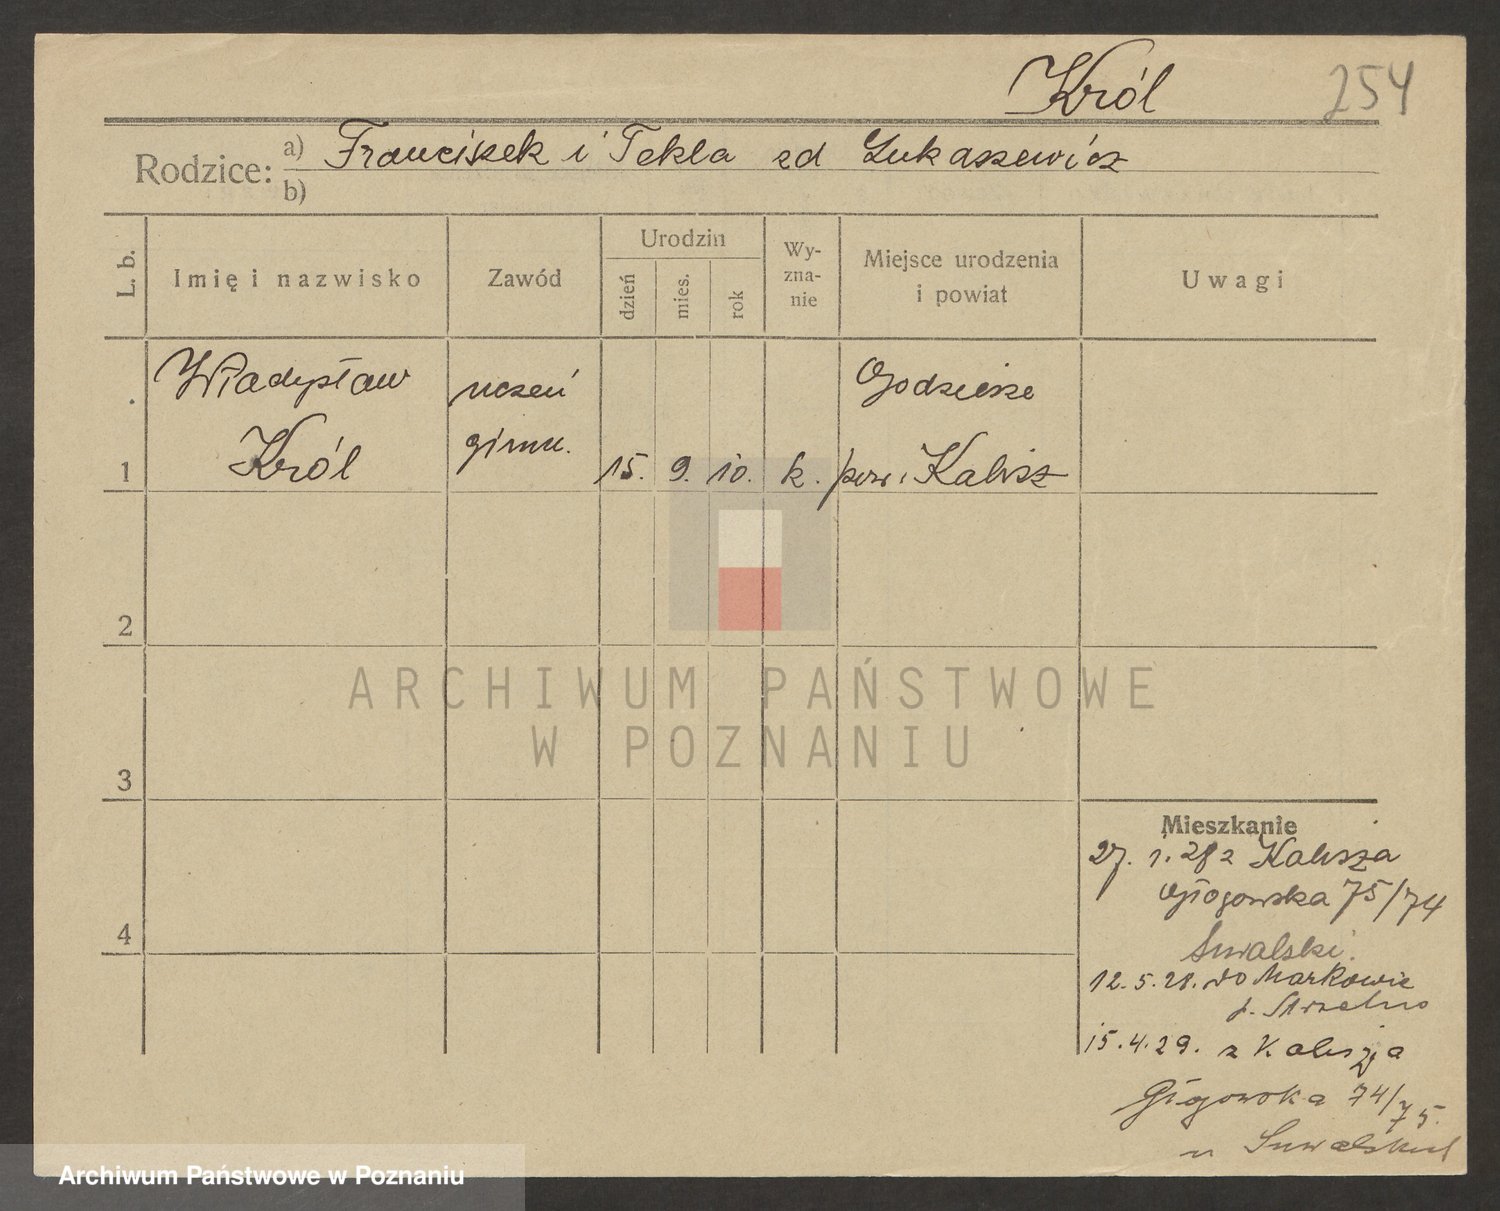 Król
254
Rodzice: a) Franciszek i Tekla zd Łukaszewicz
b)
L. b.
Imię i nazwisko
Zawód
Urodzin
dzień
mies.
rok
Wy-
zna-
nie
Miejsce urodzenia
i powiat
Uwagi
Władysław
Król
uczeń
gimn.
15. 9. 10. k.
Godziesze
pow. Kalisz
1
2
3
4
ARCHIWUM PAŃSTWOWE
W POZNANIU
Mieszkanie
27. 1. 28 z Kalisza
Głogowska 75/74
Suwalski.
12. 5. 28. do Markowic
p. Strzelno
15. 4. 29. z Kalisza
Głogowska 74/75.
u Suwalskich
Archiwum Państwowe w Poznaniu